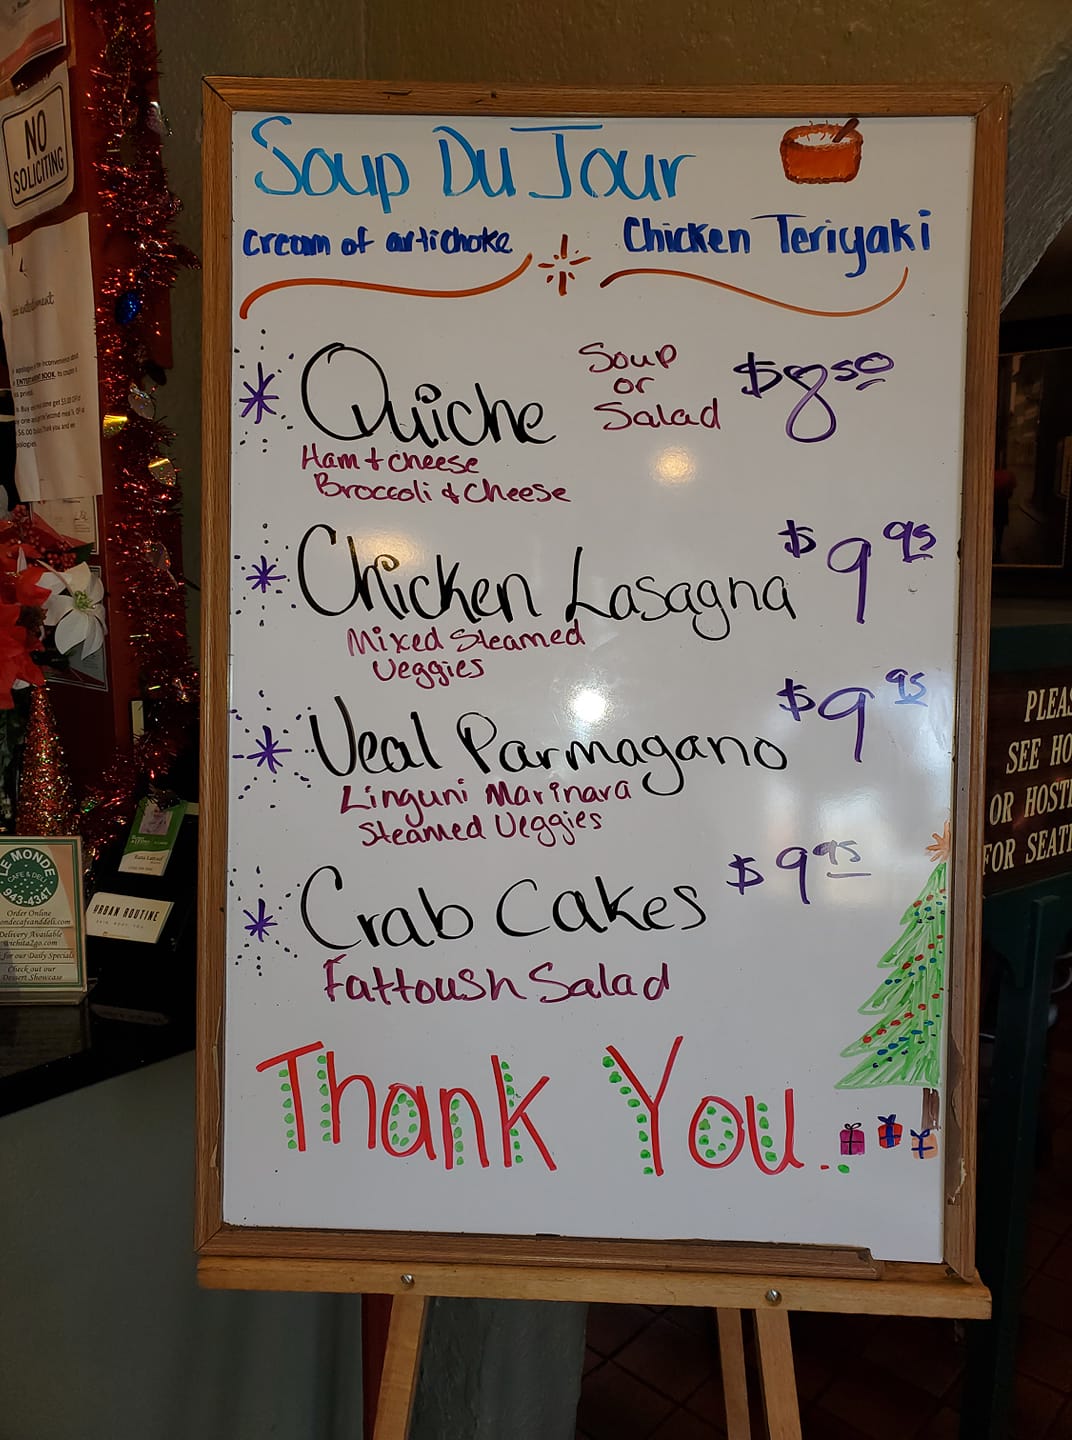 Soup Du Jour
cream of artichoke
Chicken Teriyaki
Quiche
Soup
or
Salad
$8.50
Ham + cheese
Broccoli & Cheese
Chicken Lasagna
$9.95
Mixed Steamed
Veggies
Veal Parmagano
$9.95
Linguni Marinara
Steamed Veggies
Crab Cakes
$9.95
Fattoush Salad
Thank You..
NO
SOLICITING
ENTERTAINMENT BOOK
LE MONDE
CAFE & DELI
943-4347
Order Online
ondecafeanddeli.com
Delivery Available
wichita2go.com
for our Daily Specials
Check out our
Dessert Showcase
URBAN ROUTINE
PLEAS
SEE HO
OR HOSTE
FOR SEATI